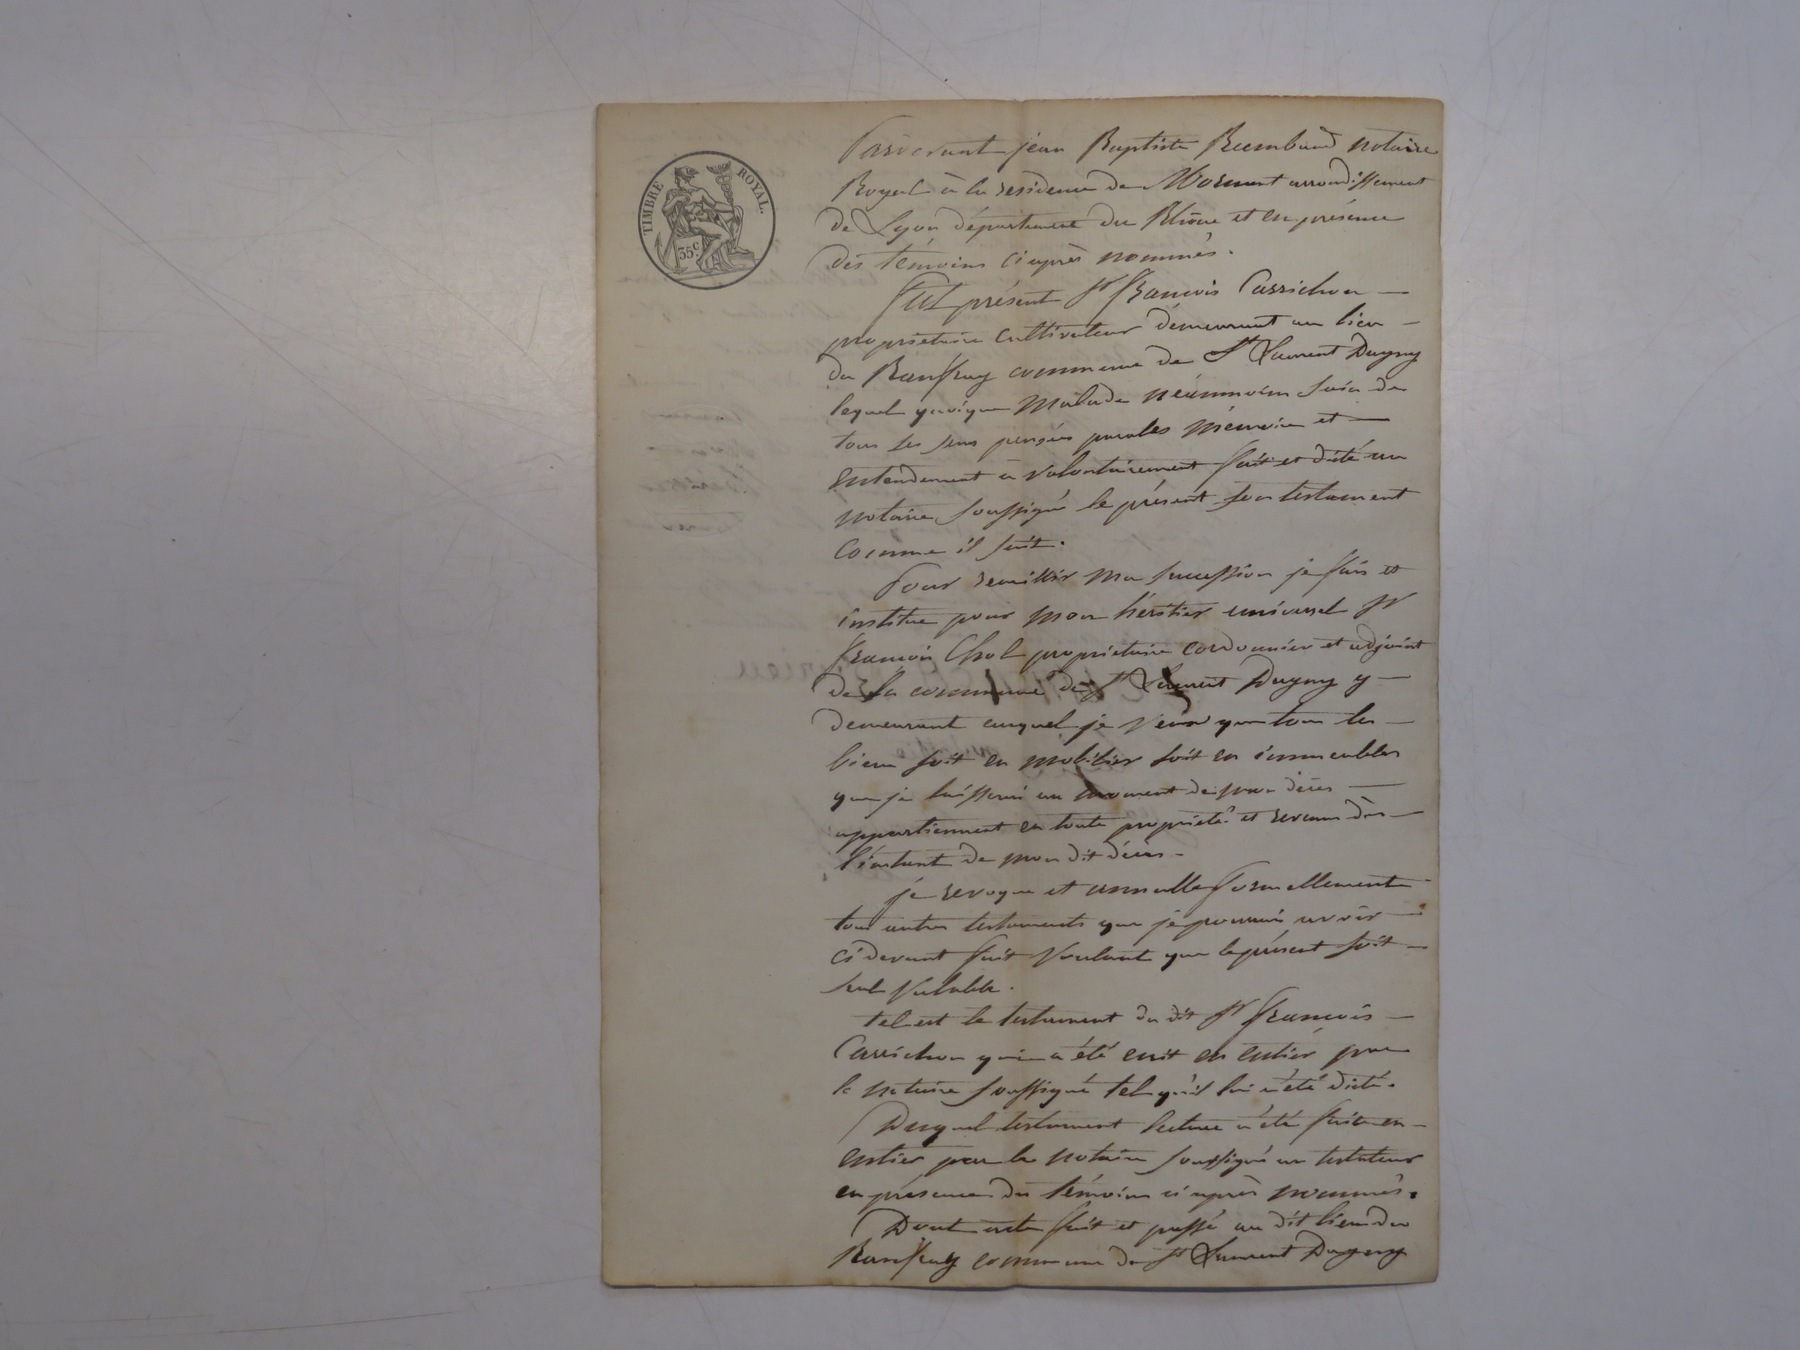 TIMBRE ROYAL.
35c.
Pardevant jean Baptiste notaire
Royal à la residence de Mornant arrondissement
de Lyon département du Rhône et en présence
des témoins ci après nommés.
fut présent Sr françois Carrichon
propriétaire cultivateur demeurant au lieu
du commune de St Laurent Dagny
lequel quoique malade néanmoins sain de
tous ses sens pensées paroles mémoire et
entendement à volontairement fait et dicté au
notaire soussigné le présent son testament
comme il suit.
Pour receuillir ma succession je fais et
institue pour mon héritier universel Sr
françois Chol propriétaire cordonnier et adjoint
de la commune de St Laurent Dagny y
demeurant auquel je veux que tous les
biens soit en mobilier soit en immeubles
que je laisserai au moment de mon décès
appartiennent en toute propriété et revenu dès
l'instant de mon dit décès.
je revoque et annulle formellement
tous autres testaments que je pourrais avoir
ci devant fait voulant que le présent soit
seul valable.
tel est le testament du dit Sr françois
Carrichon qui a été écrit en entier par
le notaire soussigné tel qu'il lui a été dicté.
Duquel testament lecture a été faite en
entier par le notaire soussigné au testateur
en présence des témoins ci après nommés.
Dont acte fait et passé au dit lieu du
commune de St Laurent Dagny